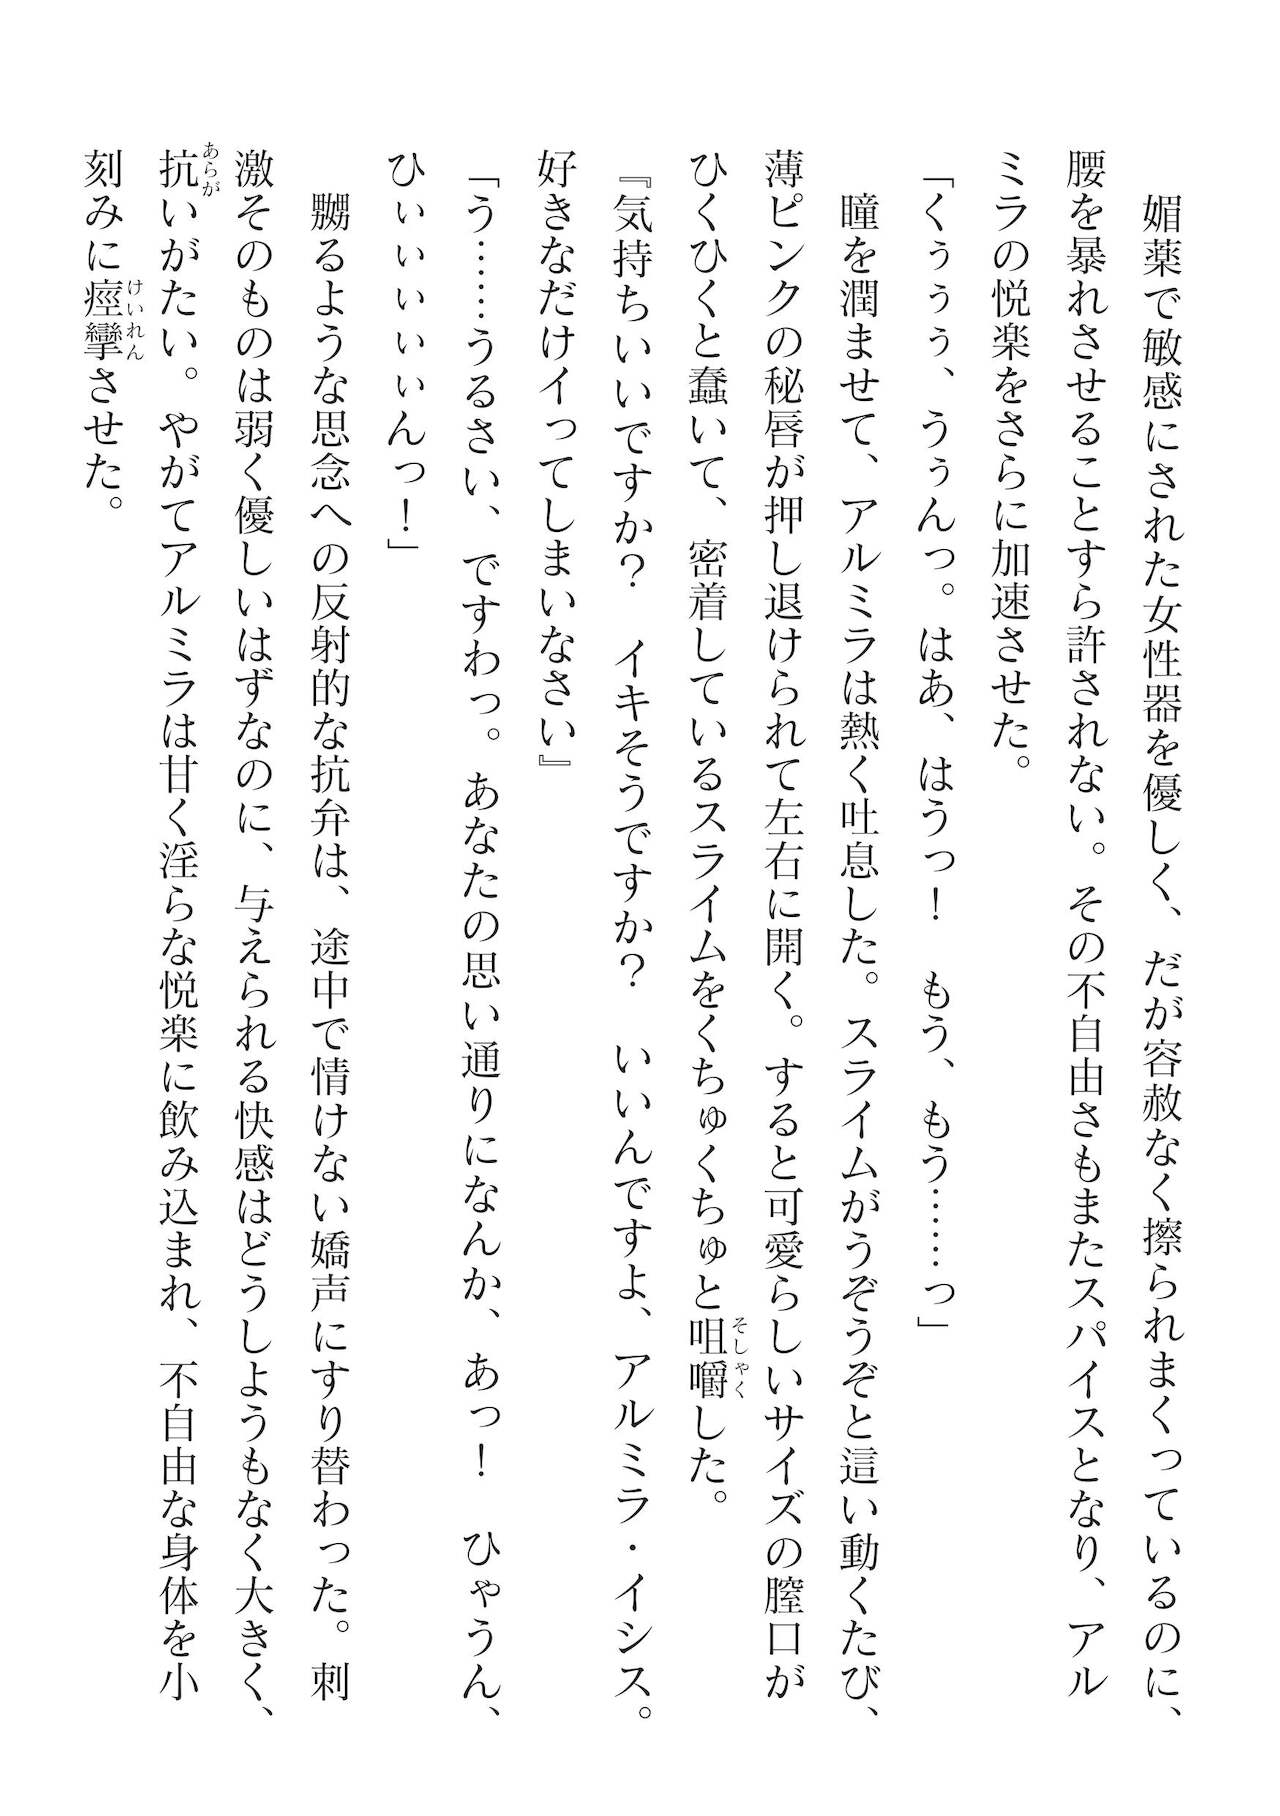 媚薬で敏感にされた女性器を優しく、だが容赦なく擦られまくっているのに、
腰を暴れさせることすら許されない。その不自由さもまたスパイスとなり、アル
ミラの悦楽をさらに加速させた。
「くぅぅぅ、うぅんっ。はあ、はうっ！　もう、もう……っ」
瞳を潤ませて、アルミラは熱く吐息した。スライムがうぞうぞと這い動くたび、
薄ピンクの秘唇が押し退けられて左右に開く。すると可愛らしいサイズの膣口が
そしゃく
ひくひくと蠢いて、密着しているスライムをくちゅくちゅと咀嚼した。
『気持ちいいですか？　イキそうですか？　いいんですよ、アルミラ・イシス。
好きなだけイってしまいなさい』
「う……うるさい、ですわっ。あなたの思い通りになんか、あっ！　ひゃうん、
ひぃぃぃぃぃんっ！」
嬲るような思念への反射的な抗弁は、途中で情けない嬌声にすり替わった。刺
激そのものは弱く優しいはずなのに、与えられる快感はどうしようもなく大きく、
あらが
抗いがたい。やがてアルミラは甘く淫らな悦楽に飲み込まれ、不自由な身体を小
けいれん
刻みに痙攣させた。